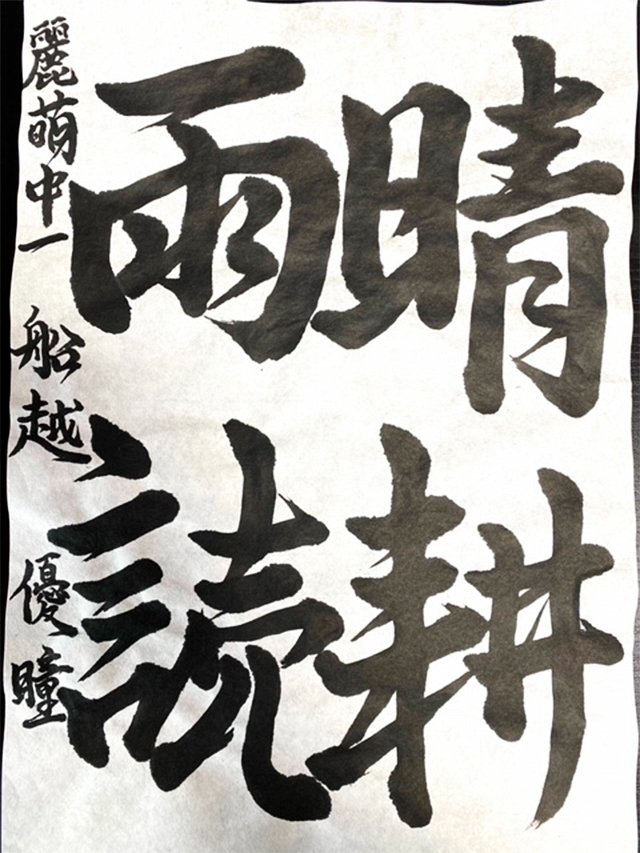 晴耕
雨読
麗萌中一 船越 優瞳